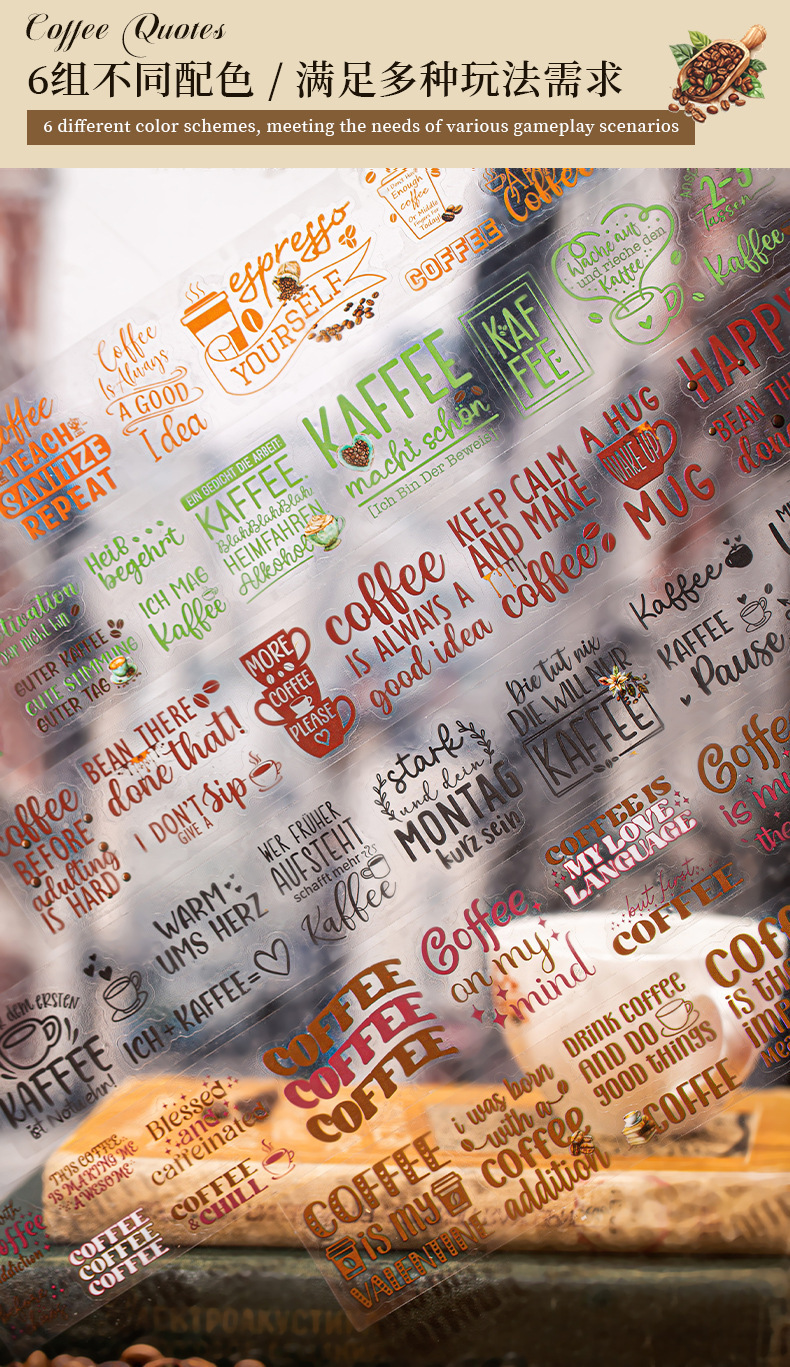 Coffee Quotes
6组不同配色 / 满足多种玩法需求
6 different color schemes, meeting the needs of various gameplay scenarios
Enough
coffee
Or Middle
Today
Coffee
COFFEE
espresso
YOURSELF
Coffee
Is Always
A GOOD
Idea
TEACH
SANITIZE
REPEAT
2-3
Tassen
Kaffee
Wache auf
und rieche den
Kaffee
KAF
FEE
KAFFEE
macht schön
[Ich Bin Der Beweis]
EIN GEDICHT DIE ARBEIT:
KAFFEE.
BlahBlahBlah
HEIMFAHREN
Alkohol
Heiß
begehrt
ICH MAG
Kaffee
GUTER KAFFEE
GUTE STIMMUNG
GUTER TAG
HAPPY
BEAN TH
done
A HUG
WAKE UP
MUG
KEEP CALM
AND MAKE
coffee
coffee
IS ALWAYS A
good idea
MORE
COFFEE
PLEASE
BEAN THERE
done that!
I DON'T
GIVE A
Sip
coffee
BEFORE
adulting
IS HARD
Kaffee
KAFFEE
Pause
Die tut nix
DIE WILL NUR
KAFFEE
stark
und dein
MONTAG
kurz sein
WER FRÜHER
AUFSTEHT
schafft mehr
Kaffee
WARM
UMS HERZ
ICH+KAFFEE=
dem ERSTEN
KAFFEE
ist Notwehr!
Coffee
is my
COFFEE IS
MY LOVE
LANGUAGE
but first,
COFFEE
Coffee
on my
mind
COFFEE
COFFEE
COFFEE
Blessed
and
caffeinated
THIS COFFEE
IS MAKING ME
AWESOME
COFFEE
& CHILL
COFFEE
COFFEE
COFFEE
is the
DRINK COFFEE
AND DO
good things
COFFEE
i was born
with a
coffee
addition
COFFEE
is my
VALENTINE